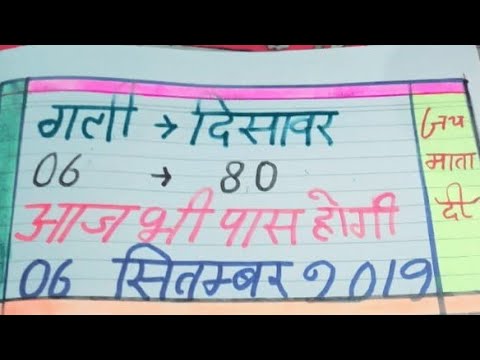 गली → दिसावर
06 → 80
आज भी पास होगी
06 सितम्बर 2019
जय
माता
दी